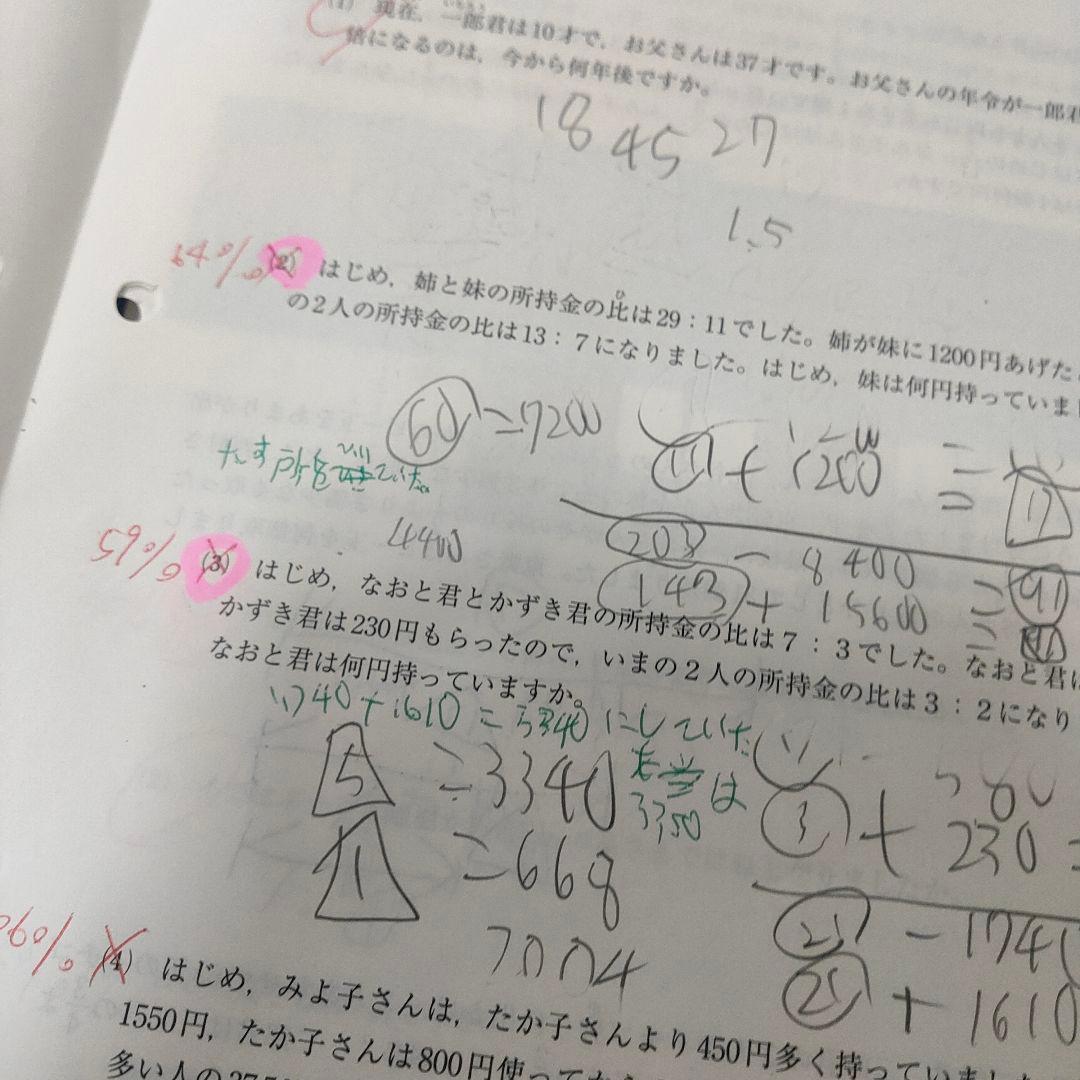 (1) 現在，一郎君は10才で，お父さんは37才です。お父さんの年令が一郎君
倍になるのは，今から何年後ですか。
18 45 27
1.5
64%
(2) はじめ，姉と妹の所持金の比は29：11でした。姉が妹に1200円あげた
の2人の所持金の比は13：7になりました。はじめ，妹は何円持っていま
60 = 7200
⑪ + 1200 =
たす所を
ていた。
4400
203 - 8400 = 91
143 + 15600 =
59%
(3) はじめ，なおと君とかずき君の所持金の比は7：3でした。なおと君は
かずき君は230円もらったので，いまの2人の所持金の比は3：2になり
なおと君は何円持っていますか。
1740+1610=3340にしていた
本当は
3350
5 = 3340
③ + 230 =
1 = 668
21 - 174
21 + 1610
(4) はじめ，みよ子さんは，たか子さんより450円多く持っていました
1550円，たか子さんは800円使っ
多い人の